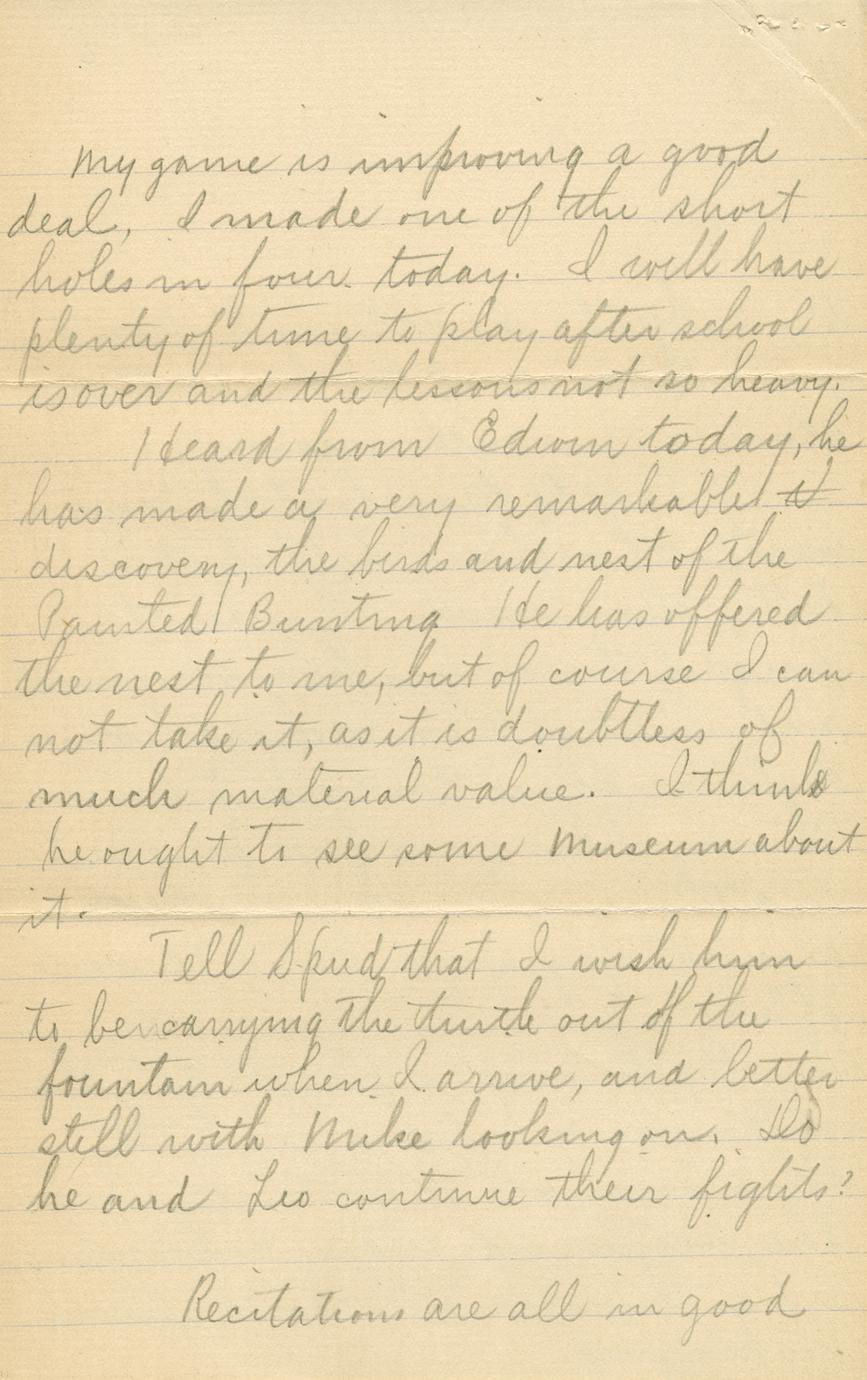 My game is improving a good
deal, I made one of the short
holes in four today. I will have
plenty of time to play after school
is over and the lessons not so heavy.
Heard from Edwin today, he
has made a very remarkable
discovery, the birds and nest of the
Painted Bunting He has offered
the nest to me, but of course I can
not take it, as it is doubtless of
much material value. I think
he ought to see some Museum about
it.
Tell Spud that I wish him
to be carrying the turtle out of the
fountain when I arrive, and better
still with Mike looking on. Do
he and Leo continue their fights?
Recitations are all in good